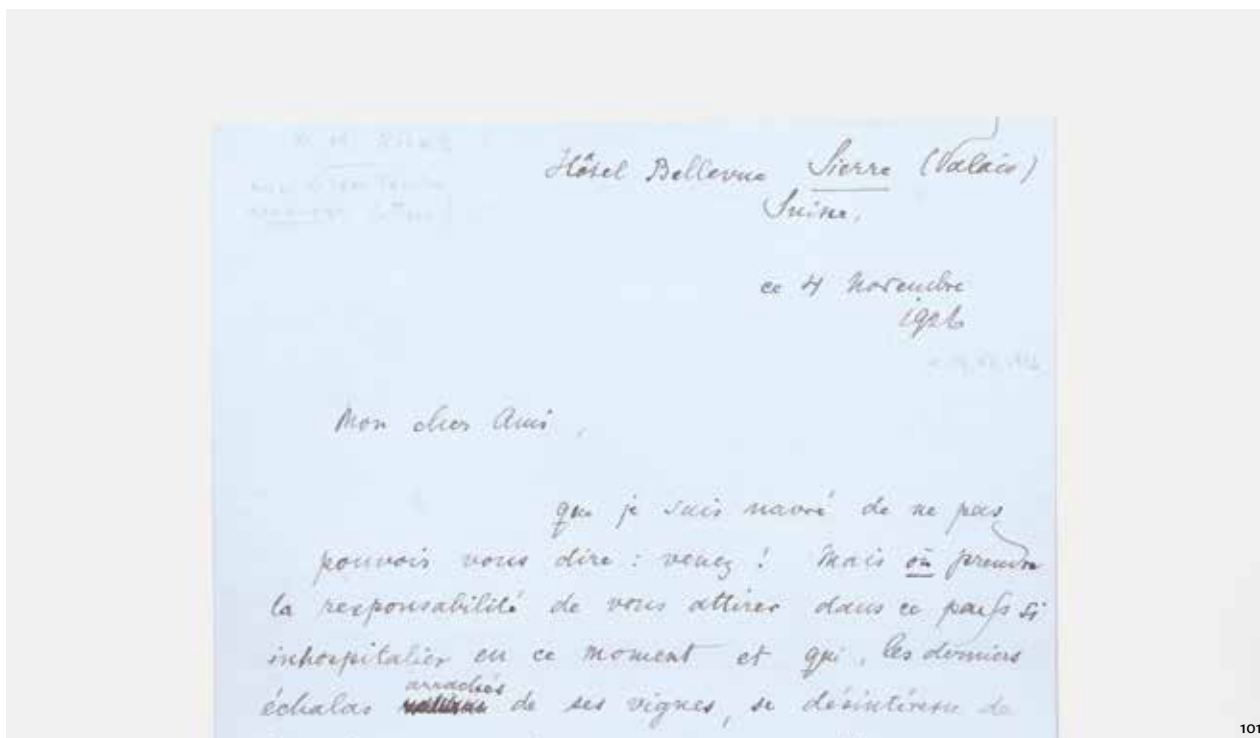 Hôtel Bellevue Sierre (Valais)
Suisse.
ce 4 Novembre
1926
Mon cher Ami,
que je suis navré de ne pas
pouvoir vous dire : venez ! Mais où prendre
la responsabilité de vous attirer dans ce pays si
inhospitalier en ce moment et qui, les derniers
arrachés
échalas de ses vignes, se désintéresse de
101